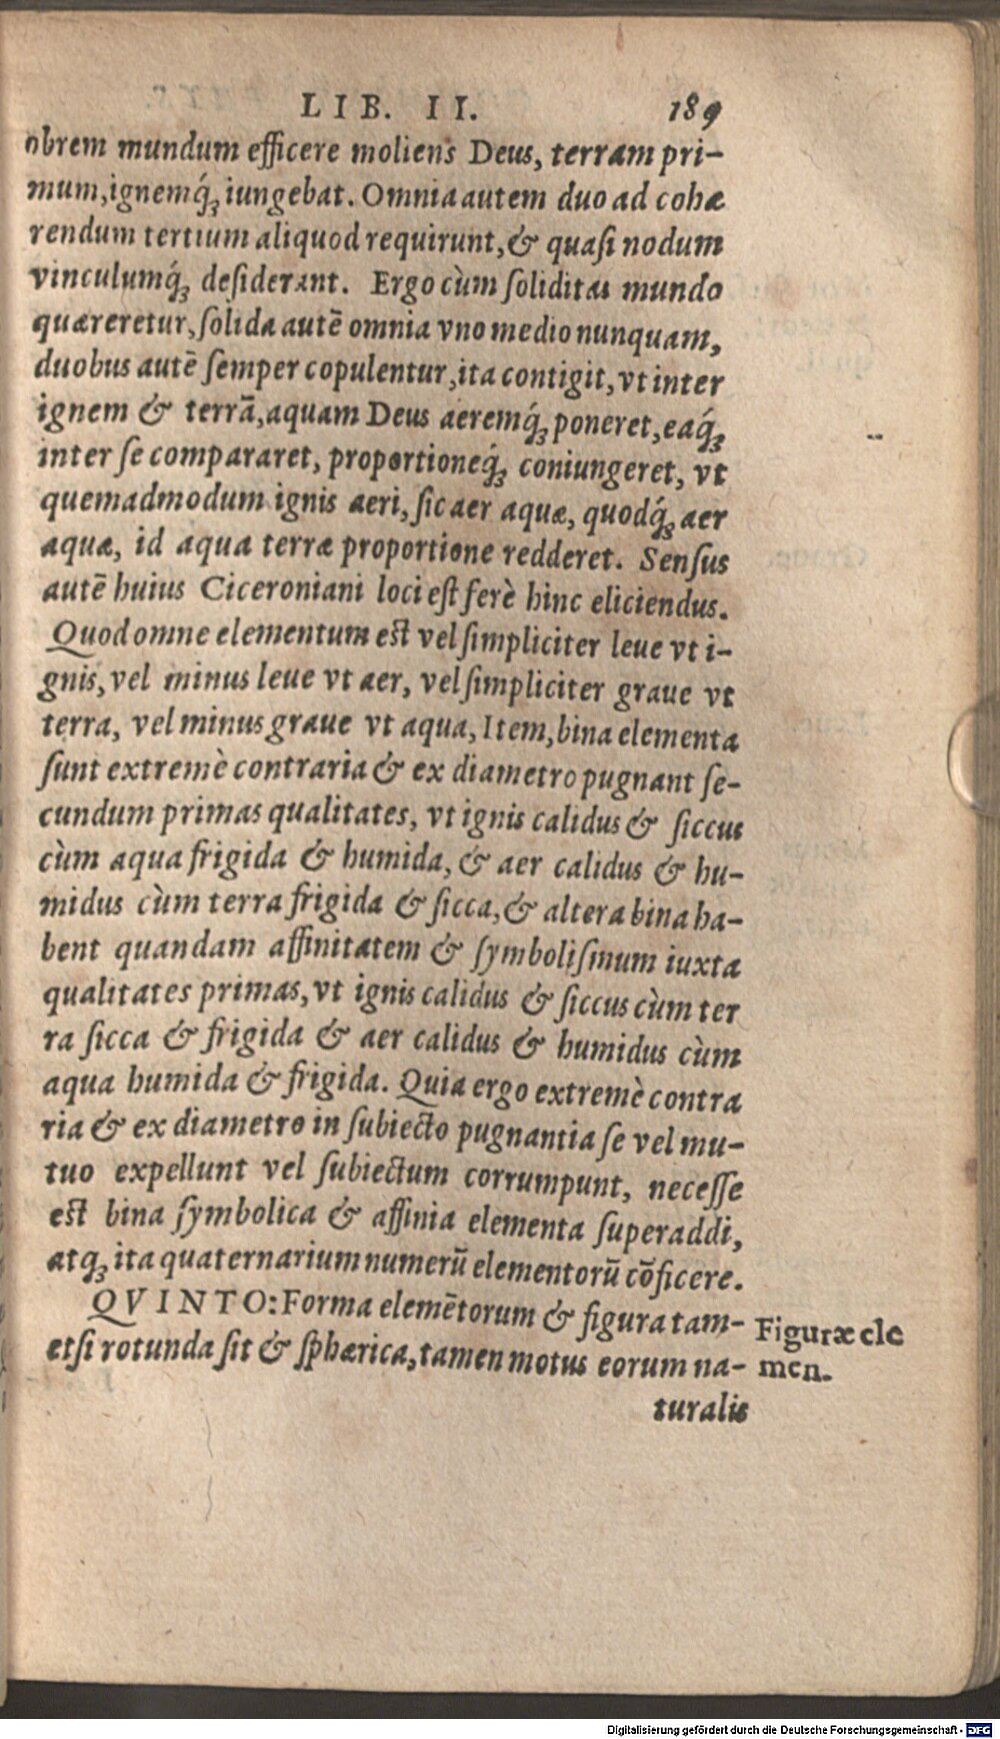 LIB. II. 189
obrem mundum efficere moliens Deus, terram pri-
mum, ignemq́ꝫ iungebat. Omnia autem duo ad cohæ
rendum tertium aliquod requirunt, & quasi nodum
vinculumq́ꝫ desiderant. Ergo cùm soliditas mundo
quæreretur, solida autē omnia vno medio nunquam,
duobus autē semper copulentur, ita contigit, vt inter
ignem & terrā, aquam Deus aeremq́ꝫ poneret, eaq́ꝫ
inter se compararet, proportioneq́ꝫ coniungeret, vt
quemadmodum ignis aeri, sic aer aquæ, quodq́ꝫ aer
aquæ, id aqua terræ proportione redderet. Sensus
autē huius Ciceroniani loci est ferè hinc eliciendus.
Quod omne elementum est vel simpliciter leue vt i-
gnis, vel minus leue vt aer, vel simpliciter graue vt
terra, vel minus graue vt aqua, Item, bina elementa
sunt extremè contraria & ex diametro pugnant se-
cundum primas qualitates, vt ignis calidus & siccus
cùm aqua frigida & humida, & aer calidus & hu-
midus cùm terra frigida & sicca, & altera bina ha-
bent quandam affinitatem & symbolismum iuxta
qualitates primas, vt ignis calidus & siccus cùm ter
ra sicca & frigida & aer calidus & humidus cùm
aqua humida & frigida. Quia ergo extremè contra
ria & ex diametro in subiecto pugnantia se vel mu-
tuo expellunt vel subiectum corrumpunt, necesse
est bina symbolica & affinia elementa superaddi,
atqꝫ ita quaternarium numerū elementorū cōficere.
QVINTO: Forma elemētorum & figura tam-
etsi rotunda sit & sphærica, tamen motus eorum na-
turalis
Figuræ ele
men.
Digitalisierung gefördert durch die Deutsche Forschungsgemeinschaft - DFG